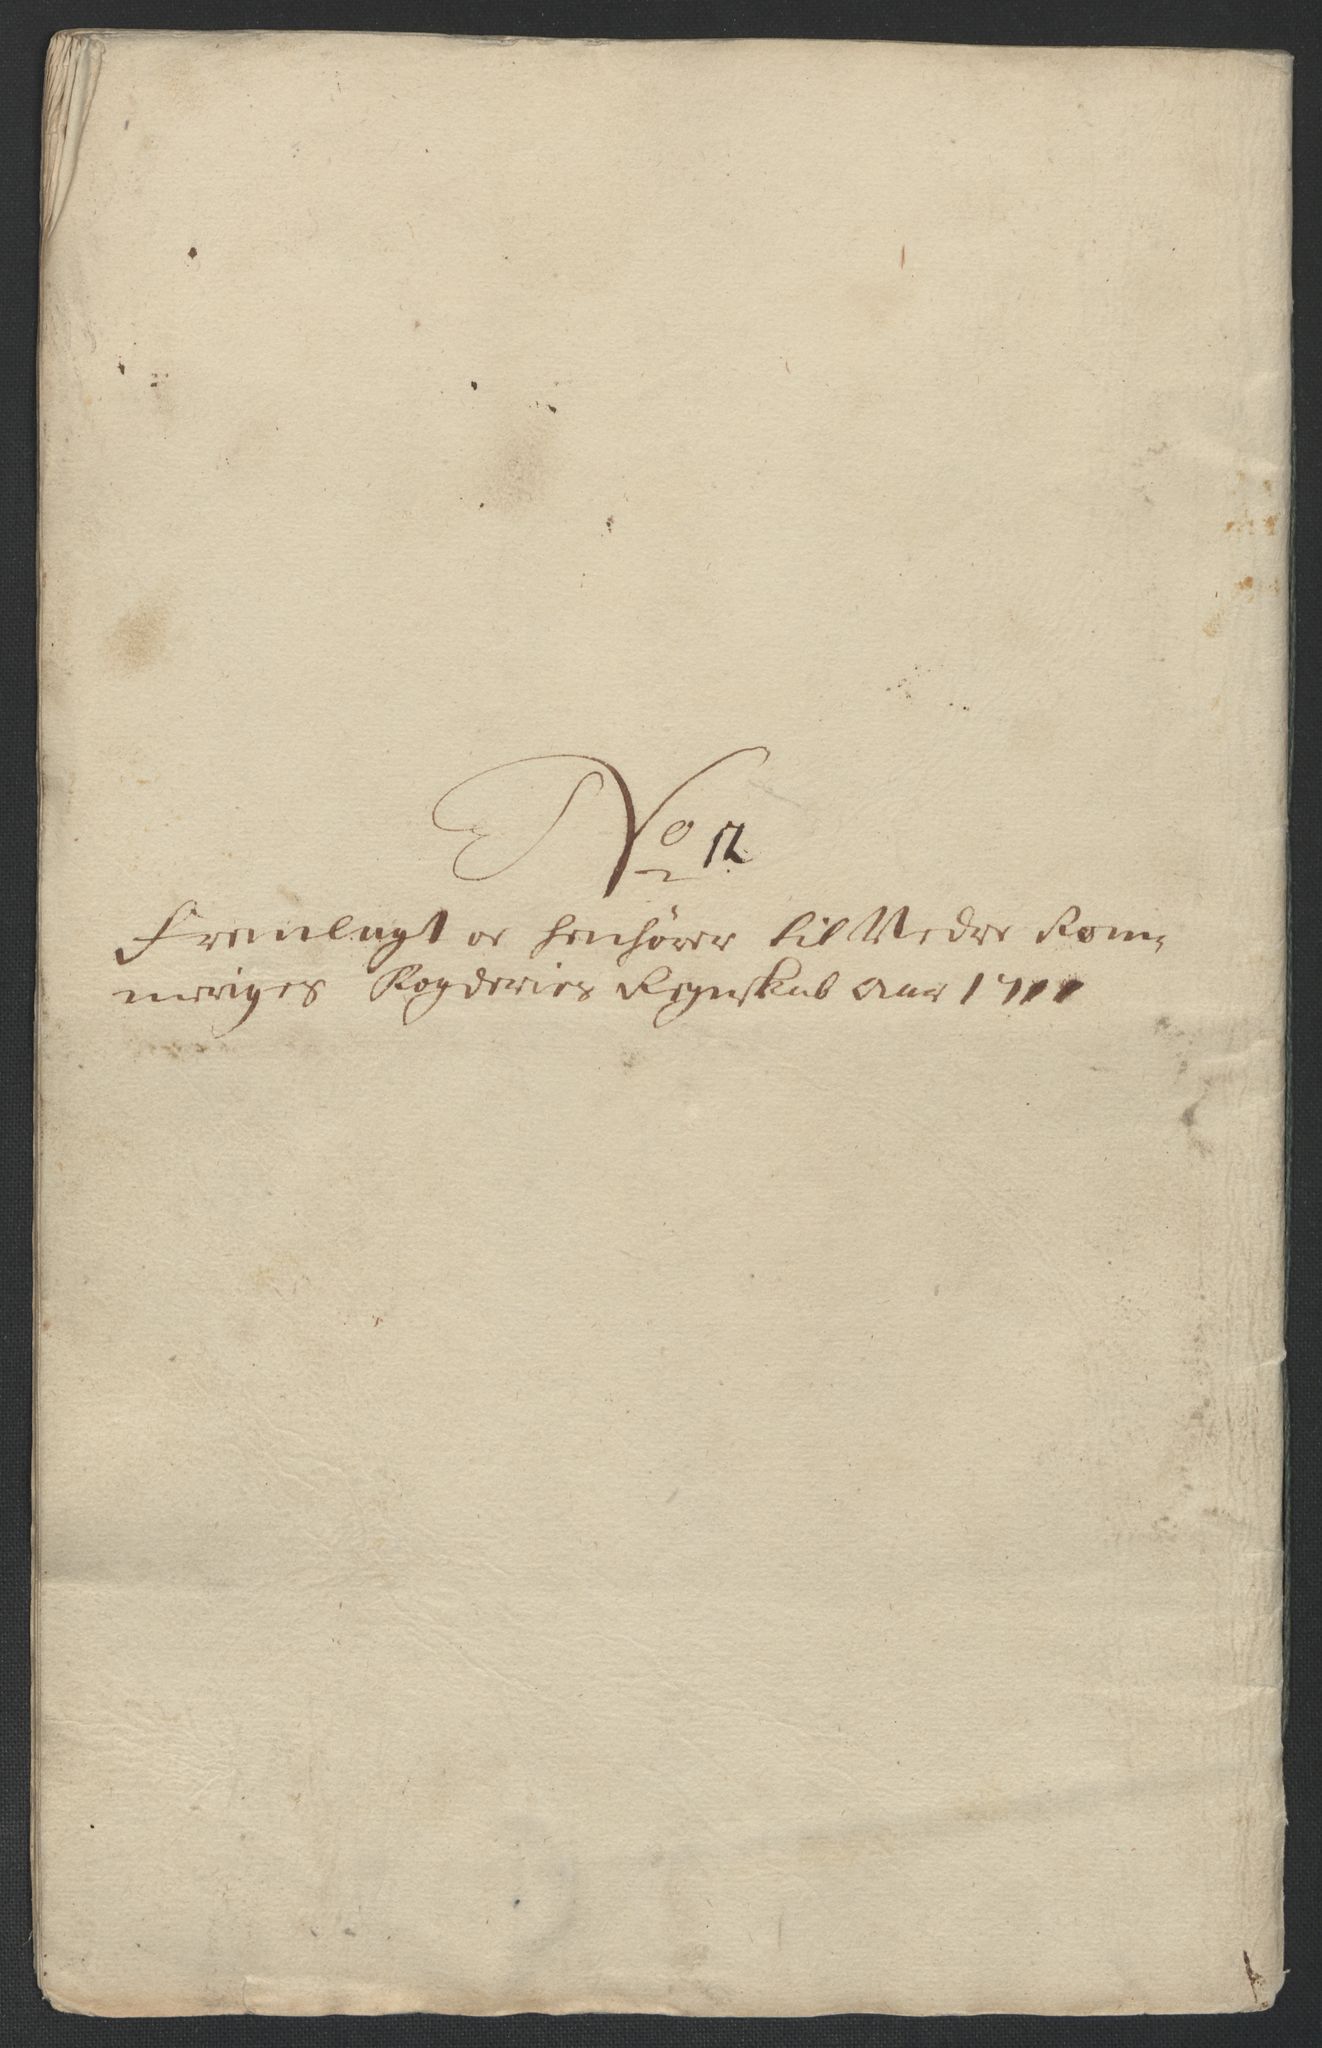 No 12
Fremlagt oc henhörer til Nedre Rom-
meriges Fogderies Regnskab Aar 1711